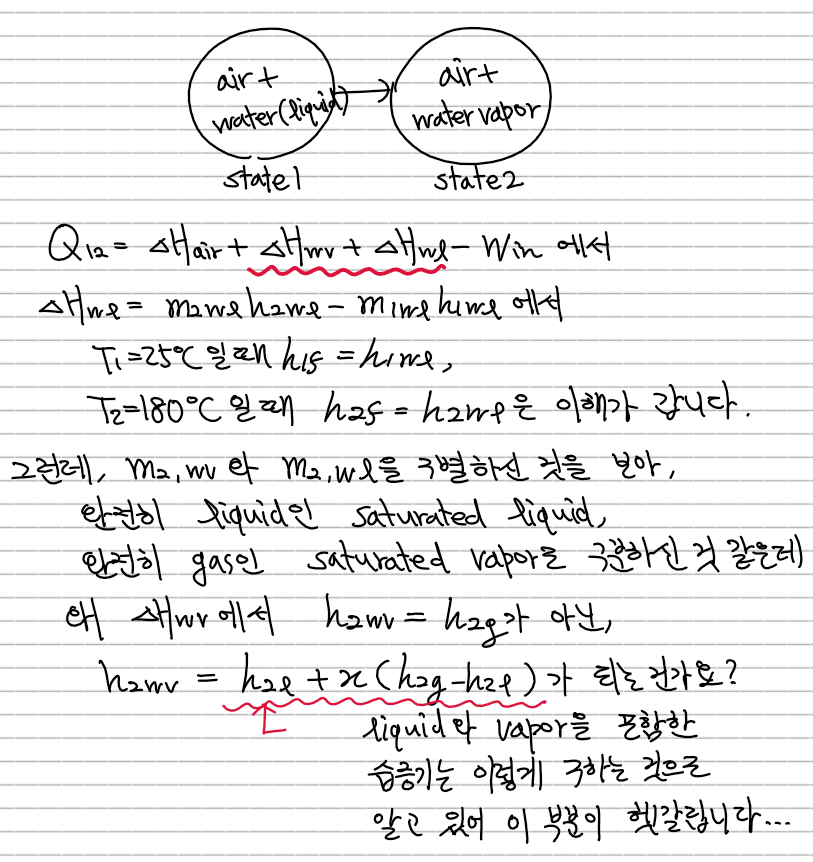 air +
water(liquid)
air +
water vapor
state1
state2
Q12 = ΔHair + ΔHwv + ΔHwl - Win 에서
ΔHwl = m2wl h2wl - m1wl h1wl 에서
T1=25℃ 일때 h1f = h1wl,
T2=180℃ 일때 h2f = h2wl은 이해가 갑니다.
그런데, m2,wv 와 m2,wl을 구별하신 것을 보아,
완전히 liquid인 saturated liquid,
완전히 gas인 saturated vapor로 구분하신 것 같은데
왜 ΔHwv에서 h2wv = h2g가 아닌,
h2wv = h2l + x(h2g-h2l)가 되는건가요?
liquid와 vapor을 포함한
습증기는 이렇게 구하는 것으로
알고 있어 이 부분이 헷갈립니다...